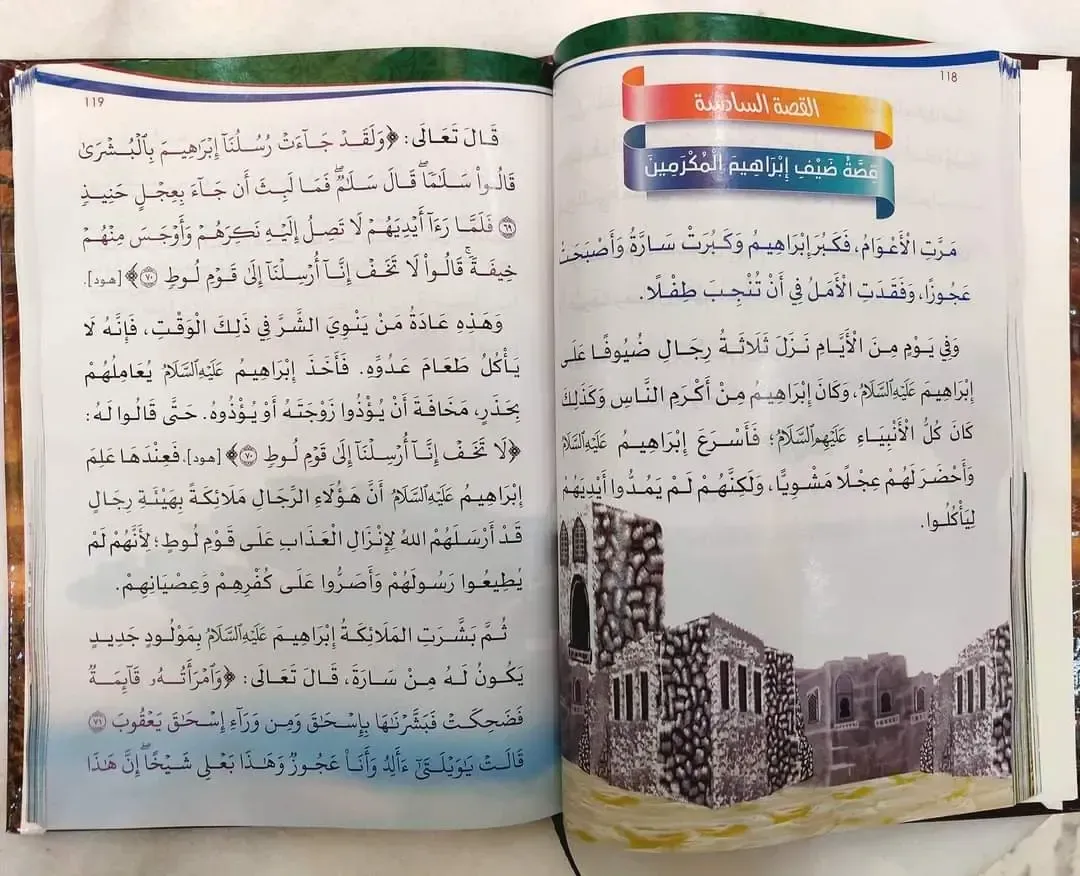 118
القصة السادسة
قِصَّةُ ضَيْفِ إِبْرَاهِيمَ الْمُكْرَمِينَ
مَرَّتِ الْأَعْوَامُ، فَكَبُرَ إِبْرَاهِيمُ وَكَبُرَتْ سَارَّةُ وَأَصْبَحَتْ
عَجُوزًا، وَفَقَدَتِ الْأَمَلُ فِي أَنْ تُنْجِبَ طِفْلًا.
وَفِي يَوْمٍ مِنَ الْأَيَّامِ نَزَلَ ثَلَاثَةُ رِجَالٍ ضُيُوفًا عَلَى
إِبْرَاهِيمَ عَلَيْهِ السَّلَامُ، وَكَانَ إِبْرَاهِيمُ مِنْ أَكْرَمِ النَّاسِ وَكَذَلِكَ
كَانَ كُلُّ الْأَنْبِيَاءِ عَلَيْهِم السَّلَامُ؛ فَأَسْرَعَ إِبْرَاهِيمُ عَلَيْهِ السَّلَامُ
وَأَحْضَرَ لَهُمْ عِجْلًا مَشْوِيًّا، وَلَكِنَّهُمْ لَمْ يَمُدُّوا أَيْدِيَهُمْ
لِيَأْكُلُوا.
119
قَالَ تَعَالَى: ﴿وَلَقَدْ جَآءَتْ رُسُلُنَآ إِبْرَٰهِيمَ بِٱلْبُشْرَىٰ
قَالُوا۟ سَلَـٰمًا ۖ قَالَ سَلَـٰمٌ ۖ فَمَا لَبِثَ أَن جَآءَ بِعِجْلٍ حَنِيذٍ
﴿٦٩﴾ فَلَمَّا رَءَآ أَيْدِيَهُمْ لَا تَصِلُ إِلَيْهِ نَكِرَهُمْ وَأَوْجَسَ مِنْهُمْ
خِيفَةً ۚ قَالُوا۟ لَا تَخَفْ إِنَّآ أُرْسِلْنَآ إِلَىٰ قَوْمِ لُوطٍ ﴿٧٠﴾﴾ [هود].
وَهَذِهِ عَادَةُ مَنْ يَنْوِيَ الشَّرَّ فِي ذَلِكَ الْوَقْتِ، فَإِنَّهُ لَا
يَأْكُلُ طَعَامَ عَدُوِّهِ. فَأَخَذَ إِبْرَاهِيمُ عَلَيْهِ السَّلَامُ يُعَامِلُهُمْ
بِحَذَرٍ، مَخَافَةَ أَنْ يُؤْذُوا زَوْجَتَهُ أَوْ يُؤْذُوهُ. حَتَّى قَالُوا لَهُ:
﴿لَا تَخَفْ إِنَّآ أُرْسِلْنَآ إِلَىٰ قَوْمِ لُوطٍ ﴿٧٠﴾﴾ [هود]. فَعِنْدَهَا عَلِمَ
إِبْرَاهِيمُ عَلَيْهِ السَّلَامُ أَنَّ هَؤُلَاءِ الرِّجَالَ مَلَائِكَةٌ بِهَيْئَةِ رِجَالٍ
قَدْ أَرْسَلَهُمْ اللهُ لِإِنْزَالِ الْعَذَابِ عَلَى قَوْمِ لُوطٍ؛ لِأَنَّهُمْ لَمْ
يُطِيعُوا رَسُولَهُمْ وَأَصَرُّوا عَلَى كُفْرِهِمْ وَعِصْيَانِهِمْ.
ثُمَّ بَشَّرَتِ المَلَائِكَةُ إِبْرَاهِيمَ عَلَيْهِ السَّلَامُ بِمَوْلُودٍ جَدِيدٍ
يَكُونُ لَهُ مِنْ سَارَةَ، قَالَ تَعَالَى: ﴿وَٱمْرَأَتُهُۥ قَآئِمَةٌ
فَضَحِكَتْ فَبَشَّرْنَـٰهَا بِإِسْحَـٰقَ وَمِن وَرَآءِ إِسْحَـٰقَ يَعْقُوبَ ﴿٧١﴾
قَالَتْ يَـٰوَيْلَتَىٰٓ ءَأَلِدُ وَأَنَا۠ عَجُوزٌ وَهَـٰذَا بَعْلِى شَيْخًا ۖ إِنَّ هَـٰذَا